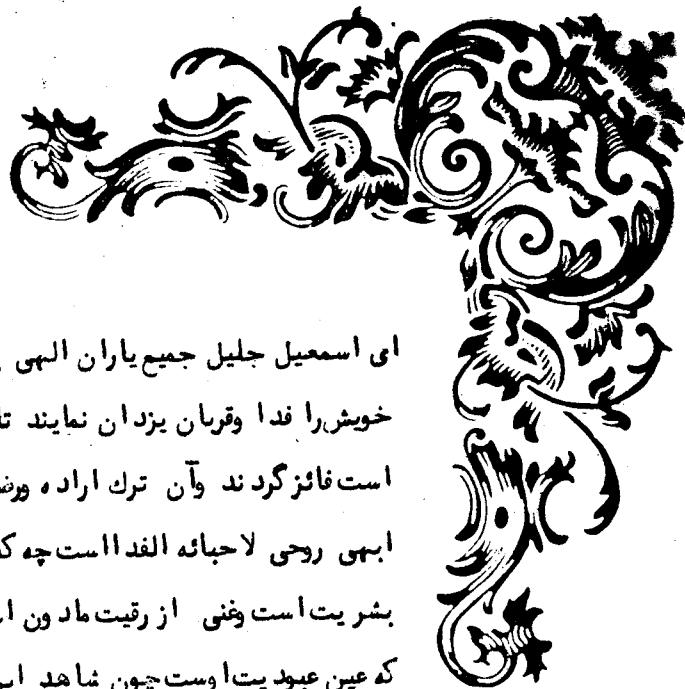 ای اسمعیل جلیل جمیع یاران الهی
خویش را فدا وقربان یزدان نمایند
است فائز گردند وآن ترك اراده
ابهی روحی لاحبائه الفدا است چه
بشریت است وغنی از رقیت مادون
که عین عبودیت اوست چون شاهد